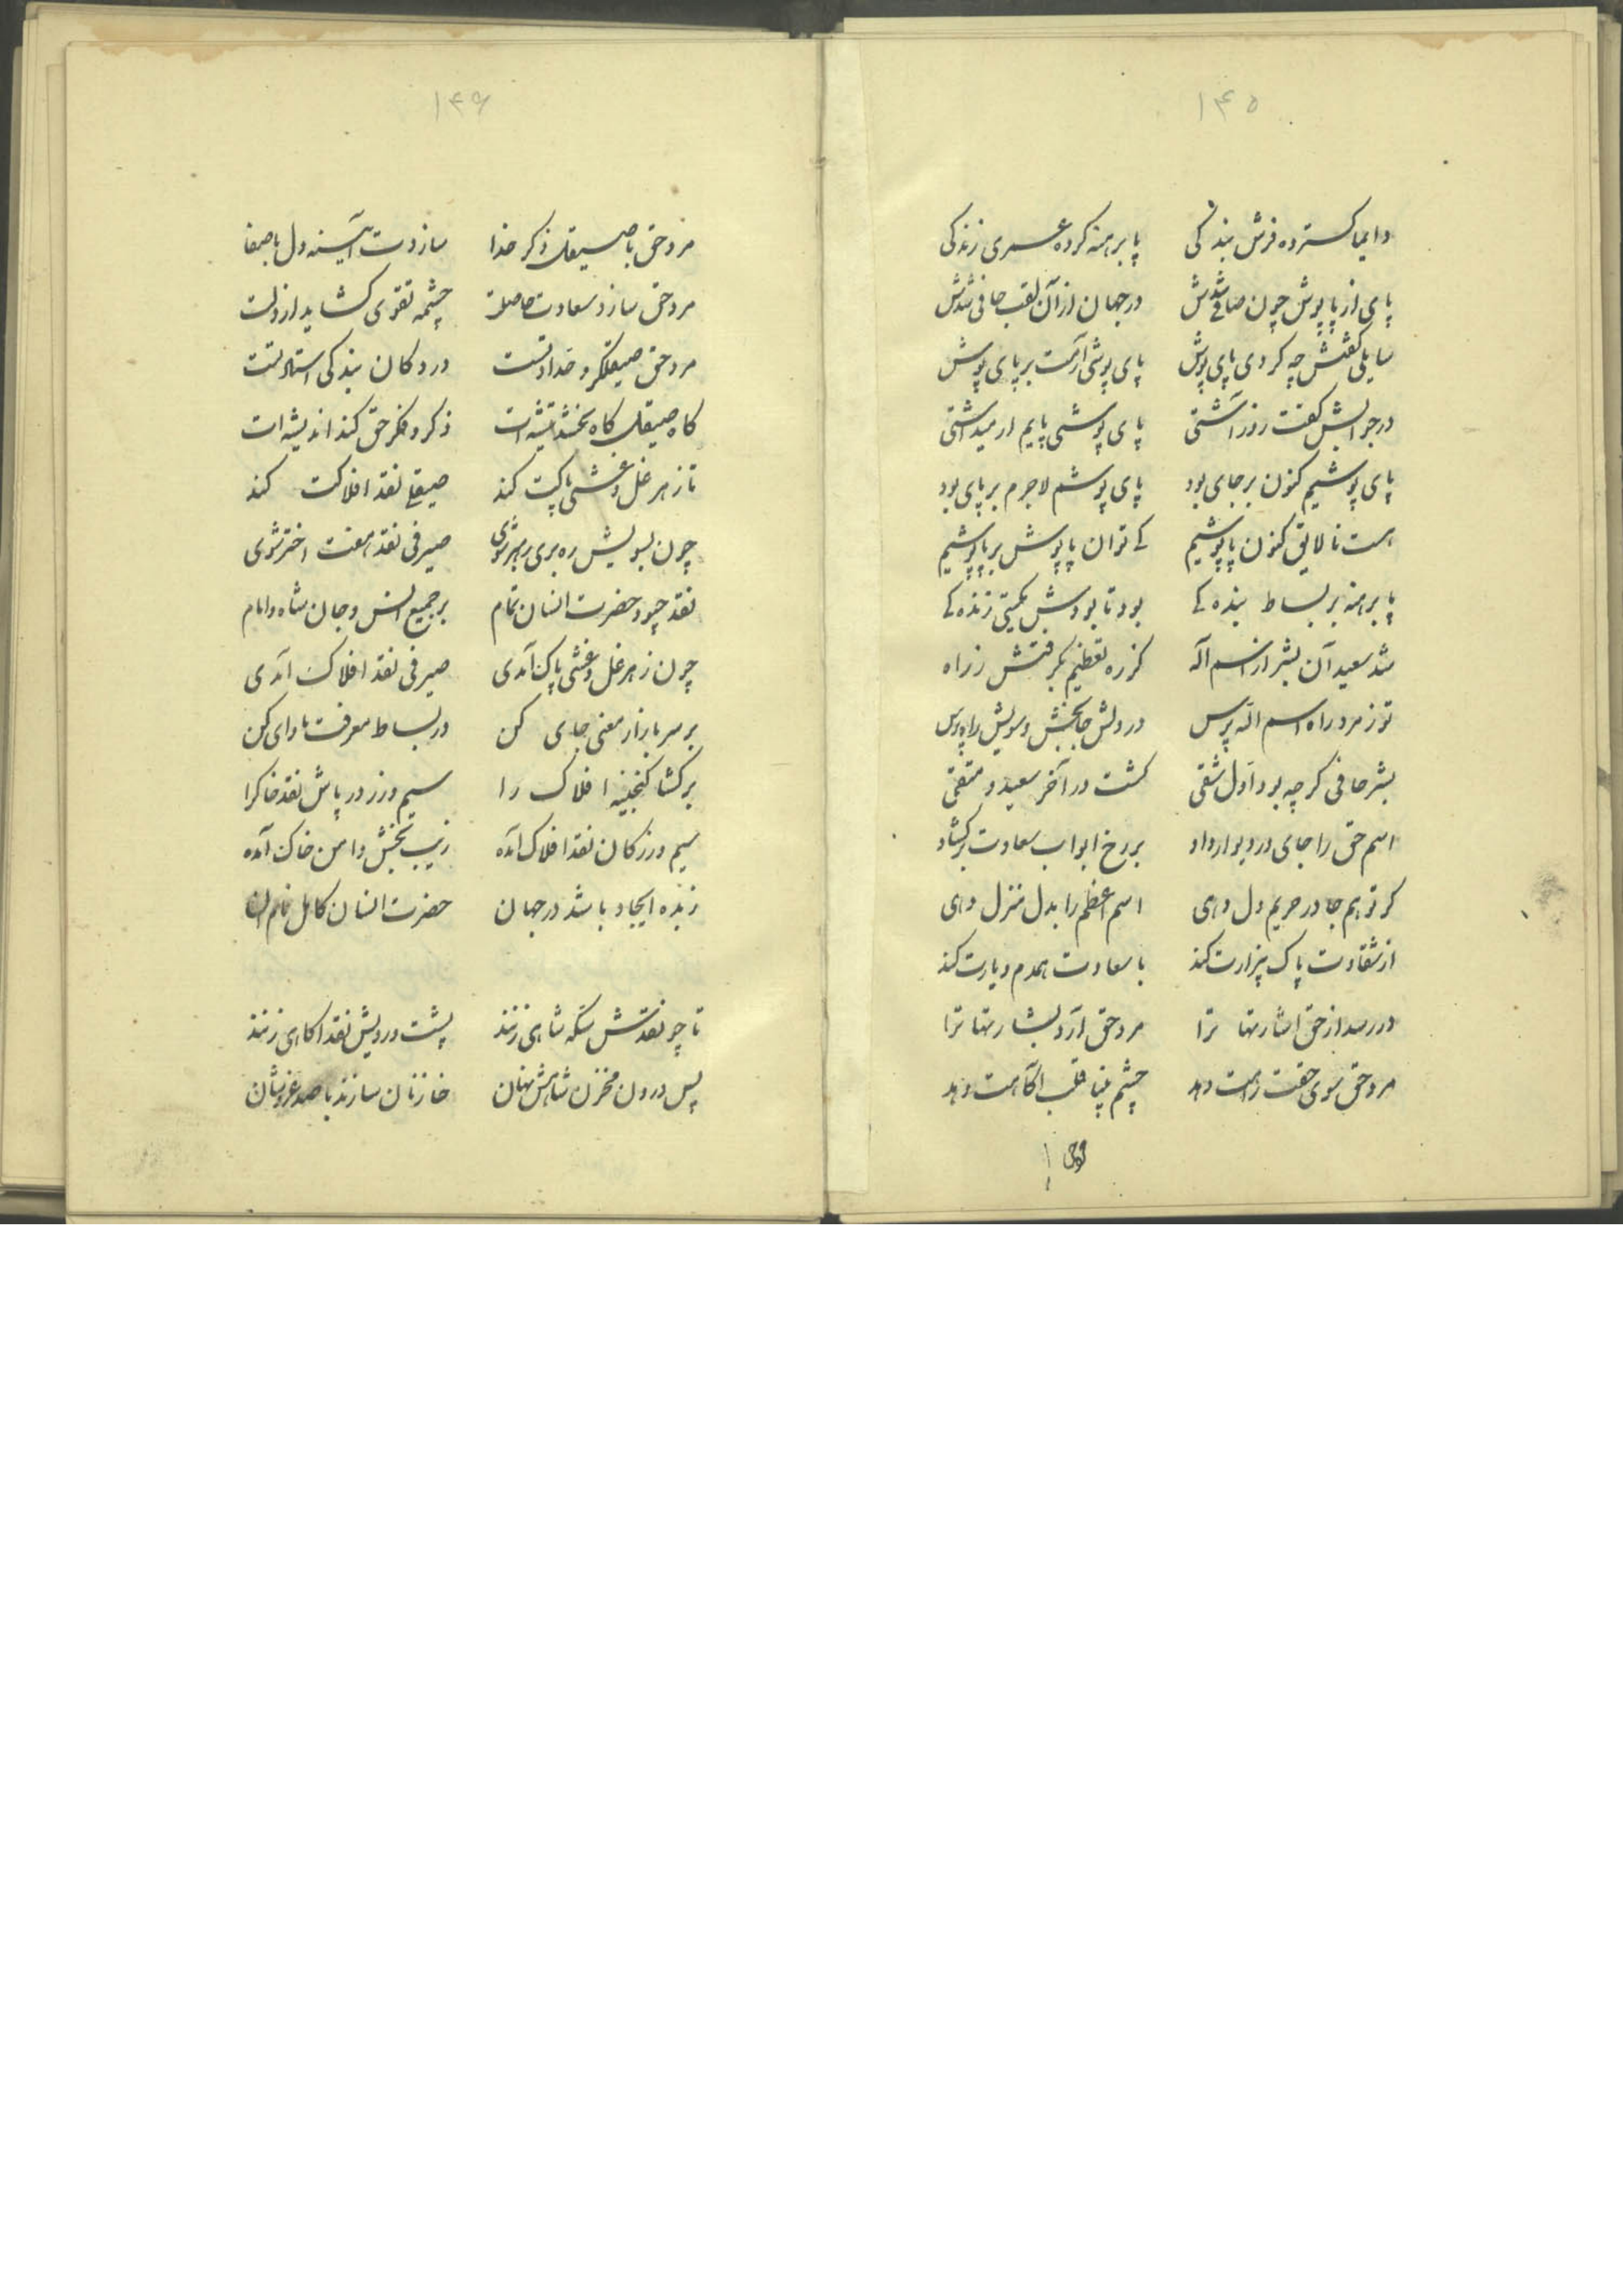 ۱۴۵
دایما کسترده فرش بندکی پا برهنه کرده عمری زندکی
پای از پاپوش چون صافی شدش در جهان از آن لقب حافی شدش
سایلی کفتش چه کردی پای پوش پای پوشی آرمت بر پای پوش
در جوابش کفت روز آشتی پای پوشی پایم ار میداشتی
پای پوشیم کنون بر جای بود پای پوشم لاجرم بر پای بود
هست نالایق کنون پاپوشیم کے توان پاپوش بر پا پوشیم
پا برهنه بر بساط بنده کے بود تا بودش بکیتی زنده کے
شد سعید آن بشر از اسم اله کز ره تعظیم بکرفتش ز راه
تو ز مرد راه اسم اله پرس در دلش جا بخش و سویش راه پرس
بشر حافی کرچه بود اول شقی کشت در آخر سعید و متقی
اسم حق را جای در دیوار داد بر رخ ابواب سعادت برکشاد
کر تو هم جا در حریم دل دهی اسم اعظم را بدل منزل دهی
از شقاوت پاک بیزارت کند با سعادت همدم و یارت کند
در رسد از حق اشارتها ترا مرد حق آرد بشارتها ترا
مرد حق سوی حقت راهت دهد چشم بینا قلب آکاهت دهد
۱۴۶
مرد حق با صیقل ذکر خدا سازدت آئینه دل با صفا
مرد حق سازد سعادت حاصلت چشمه تقوی کشاید از دلت
مرد حق صیقلکر و حدادتست در دکان بندکی استادتست
کاه صیقل کاه بخشد تیشه ات ذکر و فکر حق کند اندیشه ات
تا ز هر غل و غشی پاکت کند صیقلے نقد افلاکت کند
چون بسویش ره بری رهبر شوی صیرفی نقد هفت اختر شوی
نقد چبود حضرت انسان تمام بر جمیع انس و جان شاه و امام
چون ز هر غل و غشی پاک آمدی صیرفی نقد افلاک آمدی
بر سر بازار معنی جای کن در بساط معرفت ماوای کن
برکشا کنجینه افلاک را سیم و زر در پاش نقد خاکرا
سیم و زر کان نقد افلاک آمده زیب بخش دامن خاک آمده
زبده ایجاد باشد در جهان حضرت انسان کامل
تا چو نقدش سکه شاهی زنند پشت و رویش نقد آکاهی زنند
پس درون مخزن شاهش نهان خازنان سازند با صد عز و شان